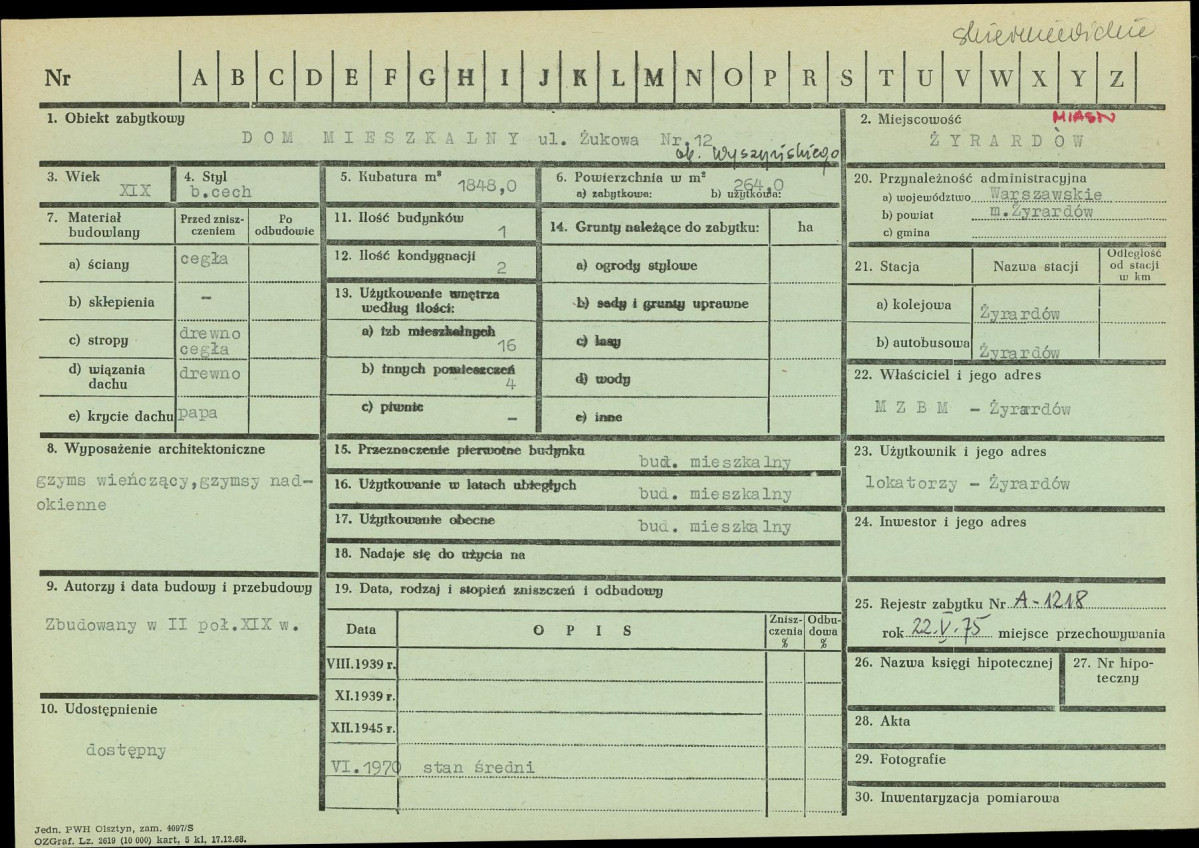 skierniewickie
Nr A B C D E F G H I J K L M N O P R S T U V W X Y Z
1. Obiekt zabytkowy
DOM MIESZKALNY ul. Żukowa Nr.12
ob. Wyszyńskiego
2. Miejscowość MIASN
ŻYRARDÓW
3. Wiek
XIX
4. Styl
b.cech
5. Kubatura m³
1848,0
6. Powierzchnia w m²
264,0
a) zabytkowa: b) użytkowa:
20. Przynależność administracyjna
a) województwo Warszawskie
b) powiat m.Żyrardów
c) gmina
7. Materiał budowlany
Przed zniszczeniem
Po odbudowie
a) ściany cegła
b) sklepienia –
c) stropy drewno cegła
d) wiązania dachu drewno
e) krycie dachu papa
11. Ilość budynków
1
12. Ilość kondygnacji
2
13. Użytkowanie wnętrza według ilości:
a) izb mieszkalnych
16
b) innych pomieszczeń
4
c) piwnic
–
14. Grunty należące do zabytku: ha
a) ogrody stylowe
b) sady i grunty uprawne
c) lasy
d) wody
e) inne
21. Stacja Nazwa stacji Odległość od stacji w km
a) kolejowa Żyrardów
b) autobusowa Żyrardów
22. Właściciel i jego adres
M Z B M – Żyrardów
8. Wyposażenie architektoniczne
gzyms wieńczący,gzymsy nad-
okienne
15. Przeznaczenie pierwotne budynku
bud. mieszkalny
16. Użytkowanie w latach ubiegłych
bud. mieszkalny
17. Użytkowanie obecne
bud. mieszkalny
18. Nadaje się do użycia na
23. Użytkownik i jego adres
lokatorzy – Żyrardów
24. Inwestor i jego adres
9. Autorzy i data budowy i przebudowy
Zbudowany w II poł.XIX w.
19. Data, rodzaj i stopień zniszczeń i odbudowy
Data OPIS Zniszczenia % Odbudowa %
VIII.1939 r.
XI.1939 r.
XII.1945 r.
VI.1970 stan średni
25. Rejestr zabytku Nr A-1218
rok 22.V.75 miejsce przechowywania
26. Nazwa księgi hipotecznej
27. Nr hipoteczny
10. Udostępnienie
dostępny
28. Akta
29. Fotografie
30. Inwentaryzacja pomiarowa
Jedn. PWH Olsztyn, zam. 4097/S
OZGraf. Lz. 2619 (10 000) kart, 5 kl, 17.12.68.